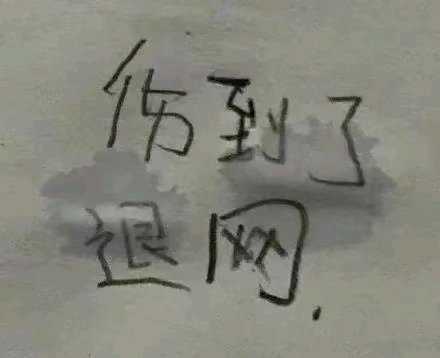 伤到了
退网.